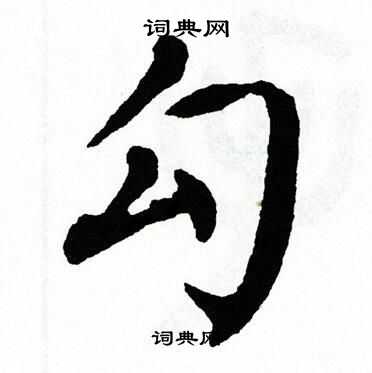 词典网
勾
词典网